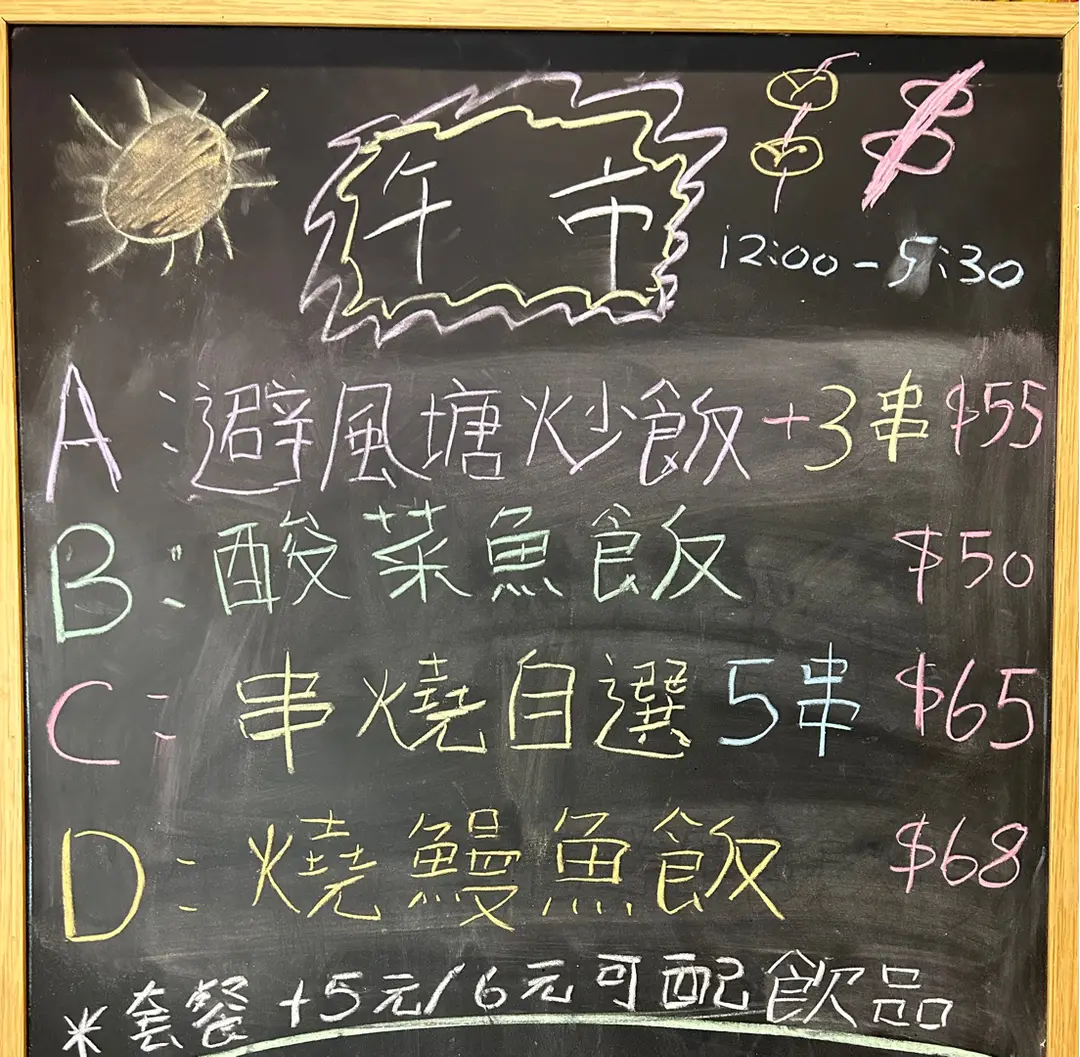 午市
12:00-5:30
A:避風塘炒飯+3串 $55
B:酸菜魚飯 $50
C:串燒自選5串 $65
D:燒鰻魚飯 $68
*套餐+5元/6元可配飲品